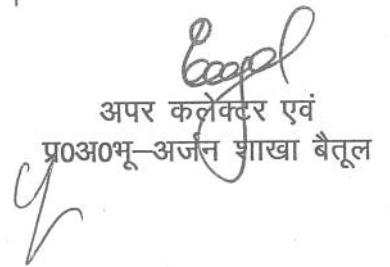 अपर कलेक्टर एवं
प्र0अ0भू–अर्जन शाखा बैतूल